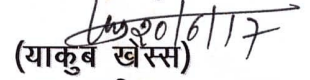 20/6/17
(याकुब खेस्स)